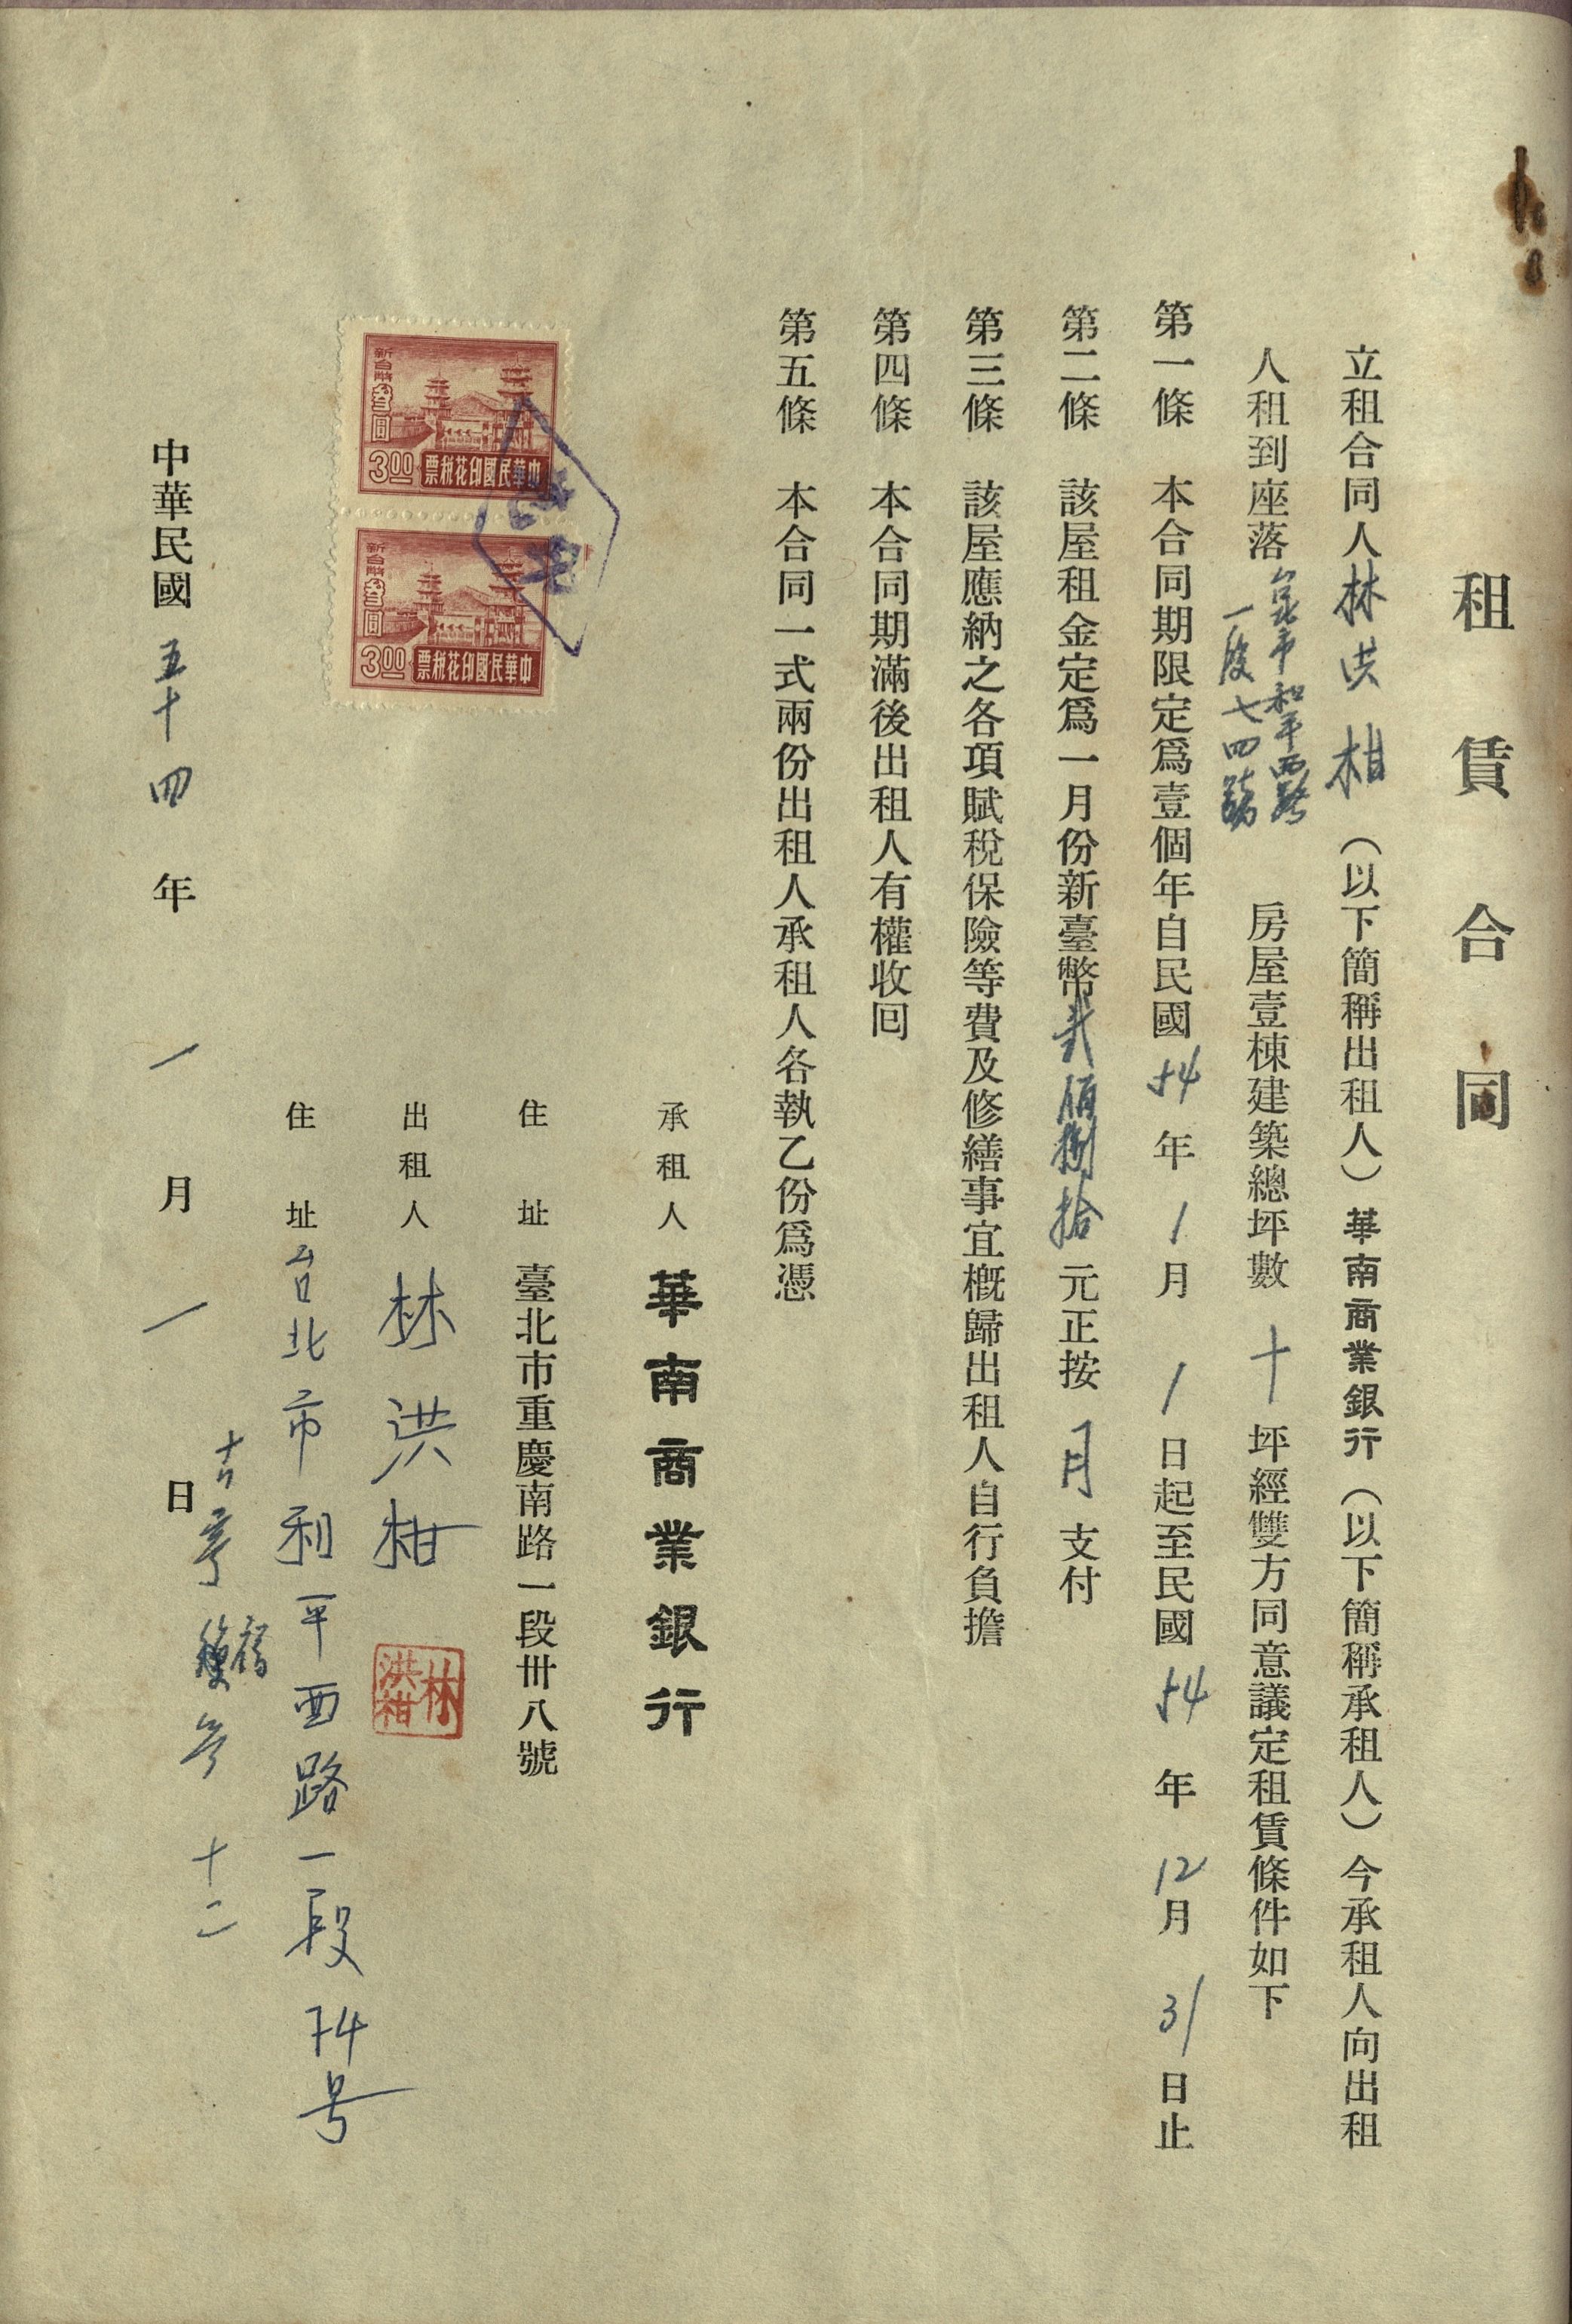 租賃合同
立租合同人林洪柑（以下簡稱出租人）華南商業銀行（以下簡稱承租人）今承租人向出租
人租到座落 市和平西路
一段七四號
房屋壹棟建築總坪數十坪經雙方同意議定租賃條件如下
第一條 本合同期限定爲壹個年自民國54年1月1日起至民國54年12月31日止
第二條 該屋租金定爲一月份新臺幣貳佰捌拾元正按月支付
第三條 該屋應納之各項賦稅保險等費及修繕事宜概歸出租人自行負擔
第四條 本合同期滿後出租人有權收囘
第五條 本合同一式兩份出租人承租人各執乙份爲憑
承租人 華南商業銀行
住址 臺北市重慶南路一段卅八號
出租人 林洪柑
林洪柑
住址 台北市和平西路一段74号
新台幣
叁圓
3.00
中華民國印花稅票
新台幣
叁圓
3.00
中華民國印花稅票
中華民國五十四年一月一日
十二